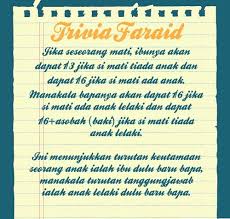 Trivia Faraid
Jika seseorang mati, ibunya akan
dapat 13 jika si mati tiada anak dan
dapat 16 jika si mati ada anak.
Manakala bapanya akan dapat 16 jika
si mati ada anak lelaki dan dapat
16+asobah (baki) jika si mati tiada
anak lelaki.
Ini menunjukkan turutan keutamaan
seorang anak ialah ibu dulu baru bapa,
manakala turutan tanggungjawab
ialah anak lelaki dulu baru bapa.